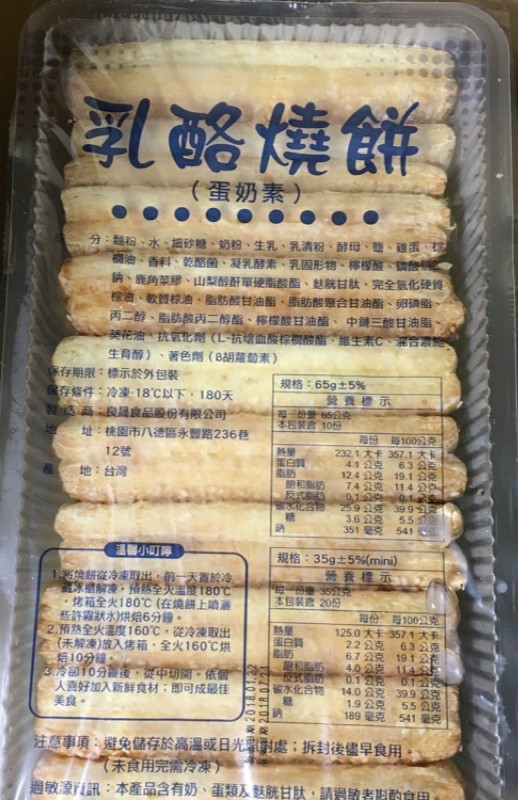 乳酪燒餅
（蛋奶素）
分：麵粉、水、細砂糖、奶粉、生乳、乳清粉、酵母、鹽、雞蛋、棕
櫚油、香料、乾酪菌、凝乳酵素、乳固形物、檸檬酸、磷酸
鈉、鹿角菜膠、山梨醇酐單硬脂酸酯、麩胱甘肽、完全氫化硬質
棕油、軟質棕油、脂肪酸甘油酯、脂肪酸聚合甘油酯、卵磷脂、
丙二醇、脂肪酸丙二醇酯、檸檬酸甘油酯、中鏈三酸甘油脂、
葵花油、抗氧化劑（L-抗壞血酸棕櫚酸酯、維生素C、混合濃縮
生育醇）、著色劑（β胡蘿蔔素）
保存期限：標示於外包裝
保存條件：冷凍-18℃以下，180天
製造商：良晟食品股份有限公司
地 址：桃園市八德區永豐路236巷
12號
產 地：台灣
規格：65g±5%
營養標示
每一份量 65公克
本包裝含 10份
每份 每100公克
熱量 232.1 大卡 357.1 大卡
蛋白質 4.1 公克 6.3 公克
脂肪 12.4 公克 19.1 公克
飽和脂肪 7.4 公克 11.4 公克
反式脂肪 0.1 公克 0.1 公克
碳水化合物 25.9 公克 39.9 公克
糖 3.6 公克 5.5 公克
鈉 351 毫克 541 毫克
規格：35g±5%(mini)
營養標示
每一份量 35公克
本包裝含 20份
每份 每100公克
熱量 125.0 大卡 357.1 大卡
蛋白質 2.2 公克 6.3 公克
脂肪 6.7 公克 19.1 公克
飽和脂肪 4.0 公克 11.4 公克
反式脂肪 0.1 公克 0.1 公克
碳水化合物 14.0 公克 39.9 公克
糖 1.9 公克 5.5 公克
鈉 189 毫克 541 毫克
溫馨小叮嚀
1.將燒餅從冷凍取出，前一天置於冷
藏冰櫃解凍，預熱全火溫度180℃
，烤箱全火180℃（在燒餅上噴灑
些許霧狀水）烘焙6分鐘。
2.預熱全火溫度160℃，從冷凍取出
（未解凍）放入烤箱，全火160℃烘
焙10分鐘。
3.冷卻10分鐘後，從中切開。依個
人喜好加入新鮮食材；即可成最佳
美食。
2018.01.22
2018.07.21
注意事項：避免儲存於高溫或日光照射處；拆封後儘早食用。
（未食用完需冷凍）
過敏源資訊：本產品含有奶、蛋類及麩胱甘肽，請過敏者斟酌食用